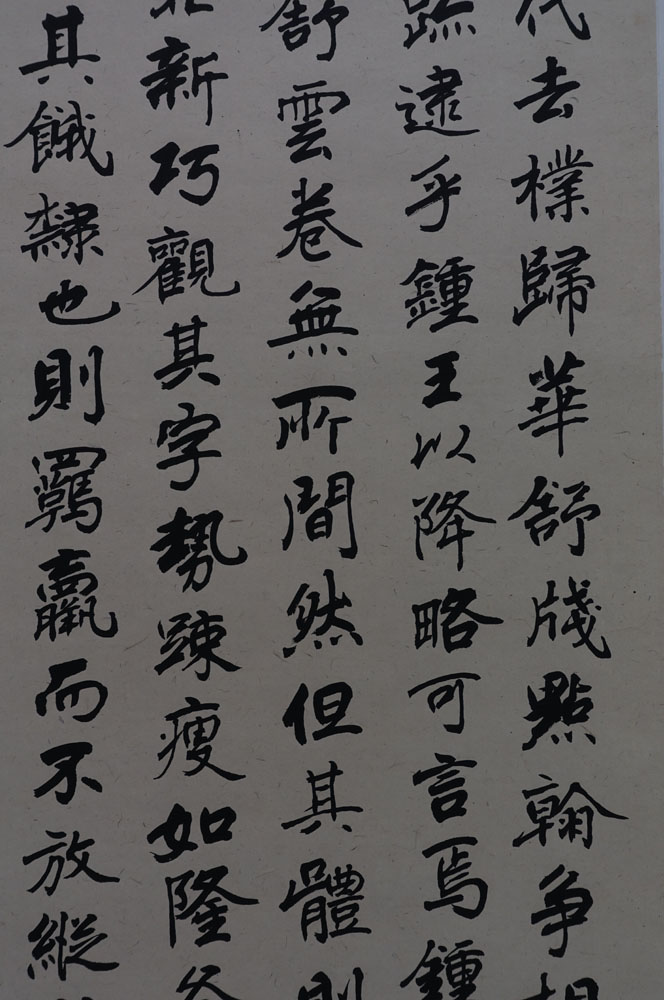 代去樸歸華舒牋點翰争相
蹤逮乎鍾王以降略可言焉鍾
舒雲卷無所間然但其體則
新巧觀其字勢踈瘦如隆冬
其餓隸也則羈羸而不放縱